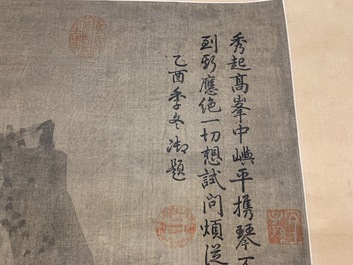 秀起高峯中嶼平携琴
到斯應絶一切想試問煩从
乙酉季冬御題